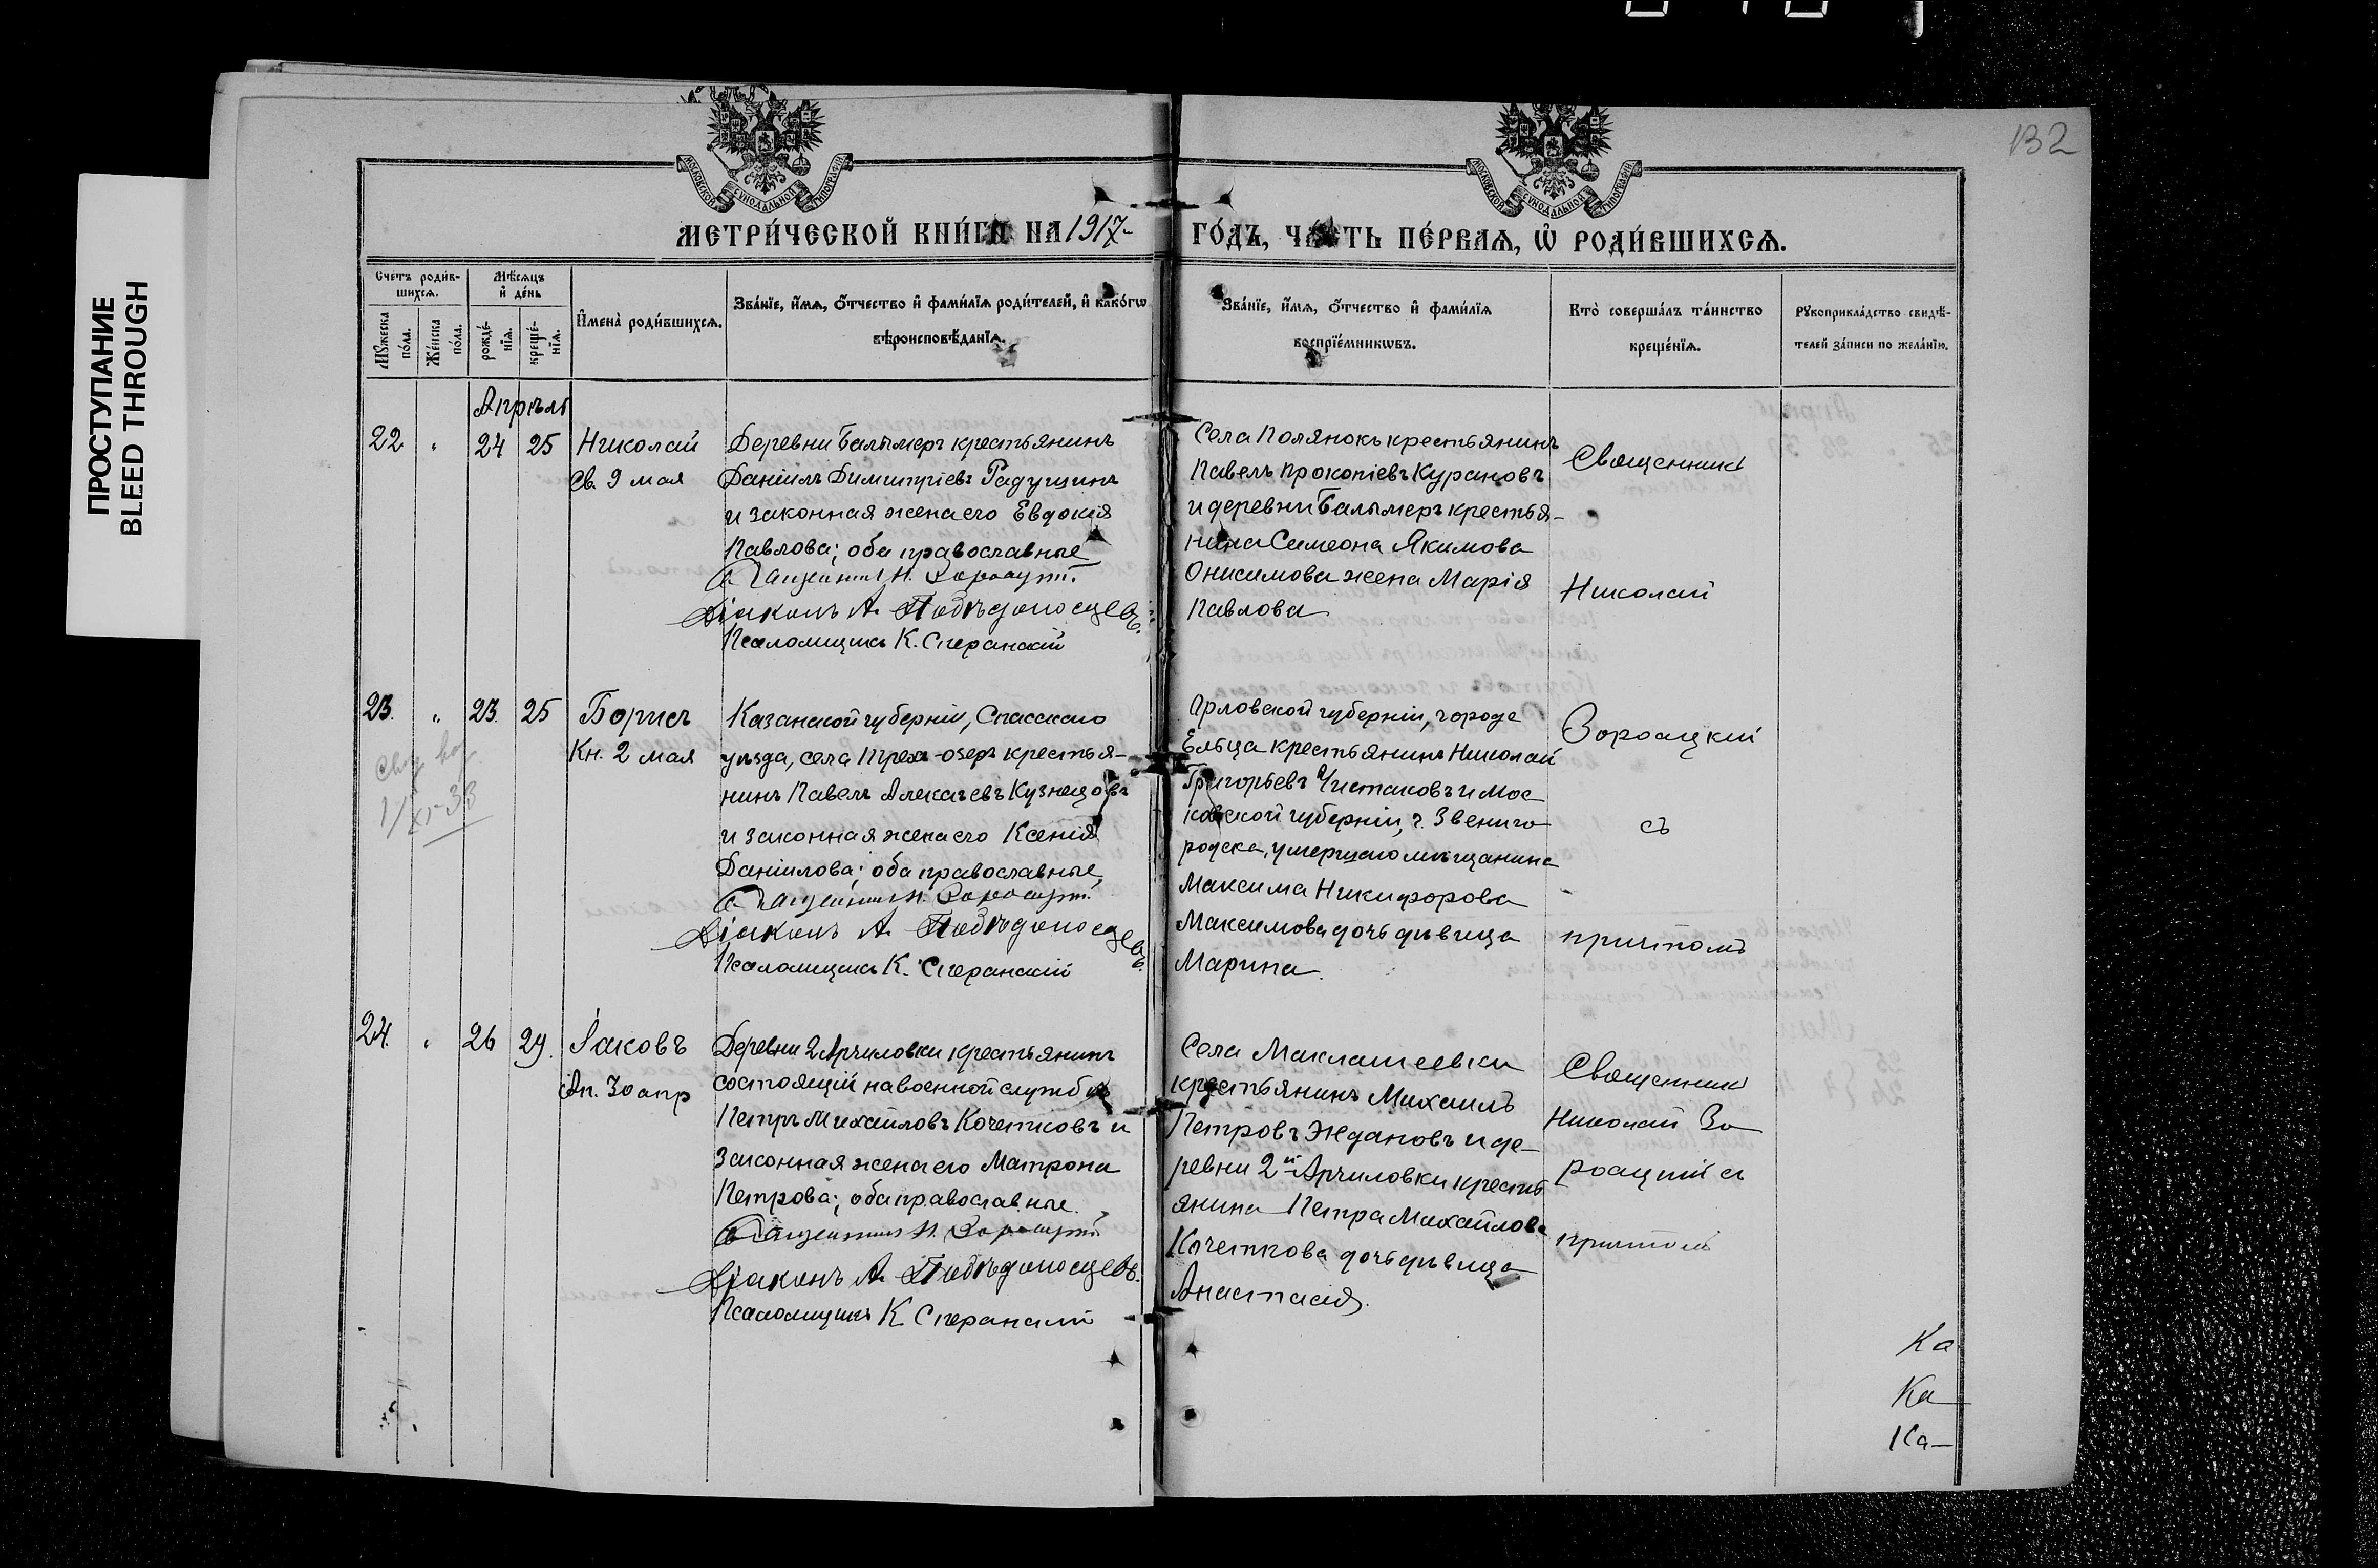 132
ПРОСТУПАНИЕ
BLEED THROUGH
МОСКОВСКОЙ СУНОДАЛЬНОЙ ТИПОГРАФІИ
МОСКОВСКОЙ СУНОДАЛЬНОЙ ТИПОГРАФІИ
МЕТРИ́ЧЕСКОЙ КНИ́ГИ НА 1917-
ГО́ДЪ, ЧА́СТЬ ПЕ́РВАѦ, Ѡ҆ РОДИ́ВШИХСѦ.
Счетъ роди́в-
шихсѧ.
Мѣ́сѧцъ
и҆ де́нь
Мꙋ́жеска
по́ла.
Же́нска
по́ла.
рожде́-
нїѧ.
креще́-
нїѧ.
И҆мена̀ роди́вшихсѧ.
Зва́нїе, и҆́мѧ, ѻ҆́тчество и҆ фами́лїѧ роди́телей, и҆ како́гѡ
вѣроисповѣ́данїѧ.
Зва́нїе, и҆́мѧ, ѻ҆́тчество и҆ фами́лїѧ
воспрїе́мникѡвъ.
Кто̀ соверша́лъ та́инство
креще́нїѧ.
Рꙋкоприкла́дство свидѣ́-
телей за́писи по жела́нїю.
Апрѣль
22 " 24 25 Николай
Св. 9 мая
Деревни Балымеръ крестьянинъ
Даніилъ Димитріевъ Радушинъ
и законная жена его Евдокія
Павлова; оба православные
Священникъ Н. Зороацкій
Діаконъ А. Побѣдоносцевъ.
Псаломщикъ К. Сперанскій
Села Полянокъ крестьянинъ
Павелъ Прокопіевъ Курановъ
и деревни Балымеръ крестья-
нина Симеона Якимова
Онисимова жена Марія
Павлова
Священникъ
Николай
23. " 23. 25 Борисъ
Кн. 2 мая
1/XI-33
Казанской губерніи, Спасскаго
уѣзда, села Трехъ-озеръ крестья-
нинъ Павелъ Алексѣевъ Кузнецовъ
и законная жена его Ксенія
Даніилова; оба православные
Священникъ Н. Зороацкій
Діаконъ А. Побѣдоносцевъ.
Псаломщикъ К. Сперанскій
Орловской губерніи, города
Ельца крестьянинъ Николай
Григорьевъ Чистаковъ и Мос
ковской губерніи, г. Звениго
родска, умершаго мѣщанина
Максима Никифорова
Максимова дочь дѣвица
Марина.
Зороацкій
съ
причтомъ
24. " 26 29. Іаковъ
Ап. 30 апр
Деревни 2 Арчиловки крестьянинъ
состоящій на военной службѣ
Петръ Михайловъ Кочетковъ и
законная жена его Матрона
Петрова; оба православные.
Священникъ Н. Зороацкій
Діаконъ А. Побѣдоносцевъ.
Псаломщикъ К Сперанскій
Села Маклашеевки
крестьянинъ Михаилъ
Петровъ Ждановъ и де-
ревни 2й Арчиловки кресть
янина Петра Михайлова
Кочеткова дочь дѣвица
Анастасія.
Священникъ
Николай Зо
роацкій съ
причтомъ
Ка
Ка
Ка-